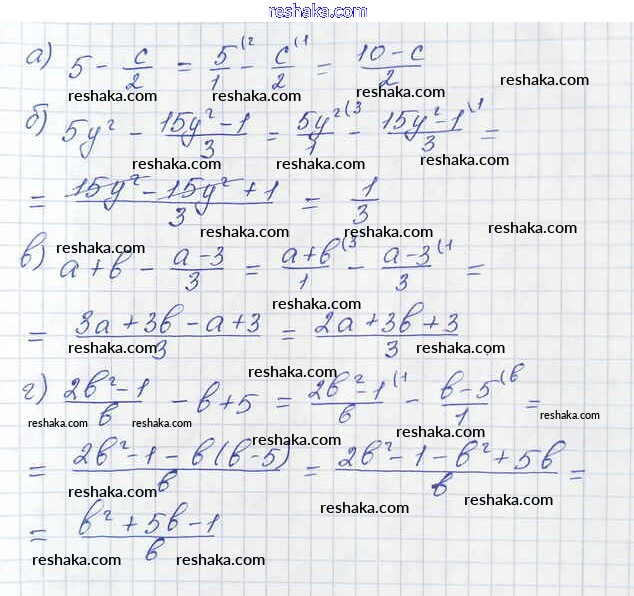 reshaka.com
а) 5 - c/2 = 5/1 (2 - c/2 (1 = (10-c)/2
reshaka.com
reshaka.com reshaka.com reshaka.com
б) 5y² - (15y²-1)/3 = 5y²/1 (3 - (15y²-1)/3 (1 =
reshaka.com reshaka.com
= (15y² - 15y² + 1)/3 = 1/3
reshaka.com reshaka.com reshaka.com
в) a+b - (a-3)/3 = (a+b)/1 (3 - (a-3)/3 (1 =
reshaka.com reshaka.com
reshaka.com
= (3a+3b-a+3)/3 = (2a+3b+3)/3
reshaka.com reshaka.com reshaka.com
г) (2b²-1)/b - b+5 = (2b²-1)/b (1 - (b-5)/1 (b =
reshaka.com reshaka.com reshaka.com reshaka.com
reshaka.com reshaka.com
= (2b²-1-b(b-5))/b = (2b²-1-b²+5b)/b =
reshaka.com reshaka.com
= (b²+5b-1)/b
reshaka.com reshaka.com reshaka.com